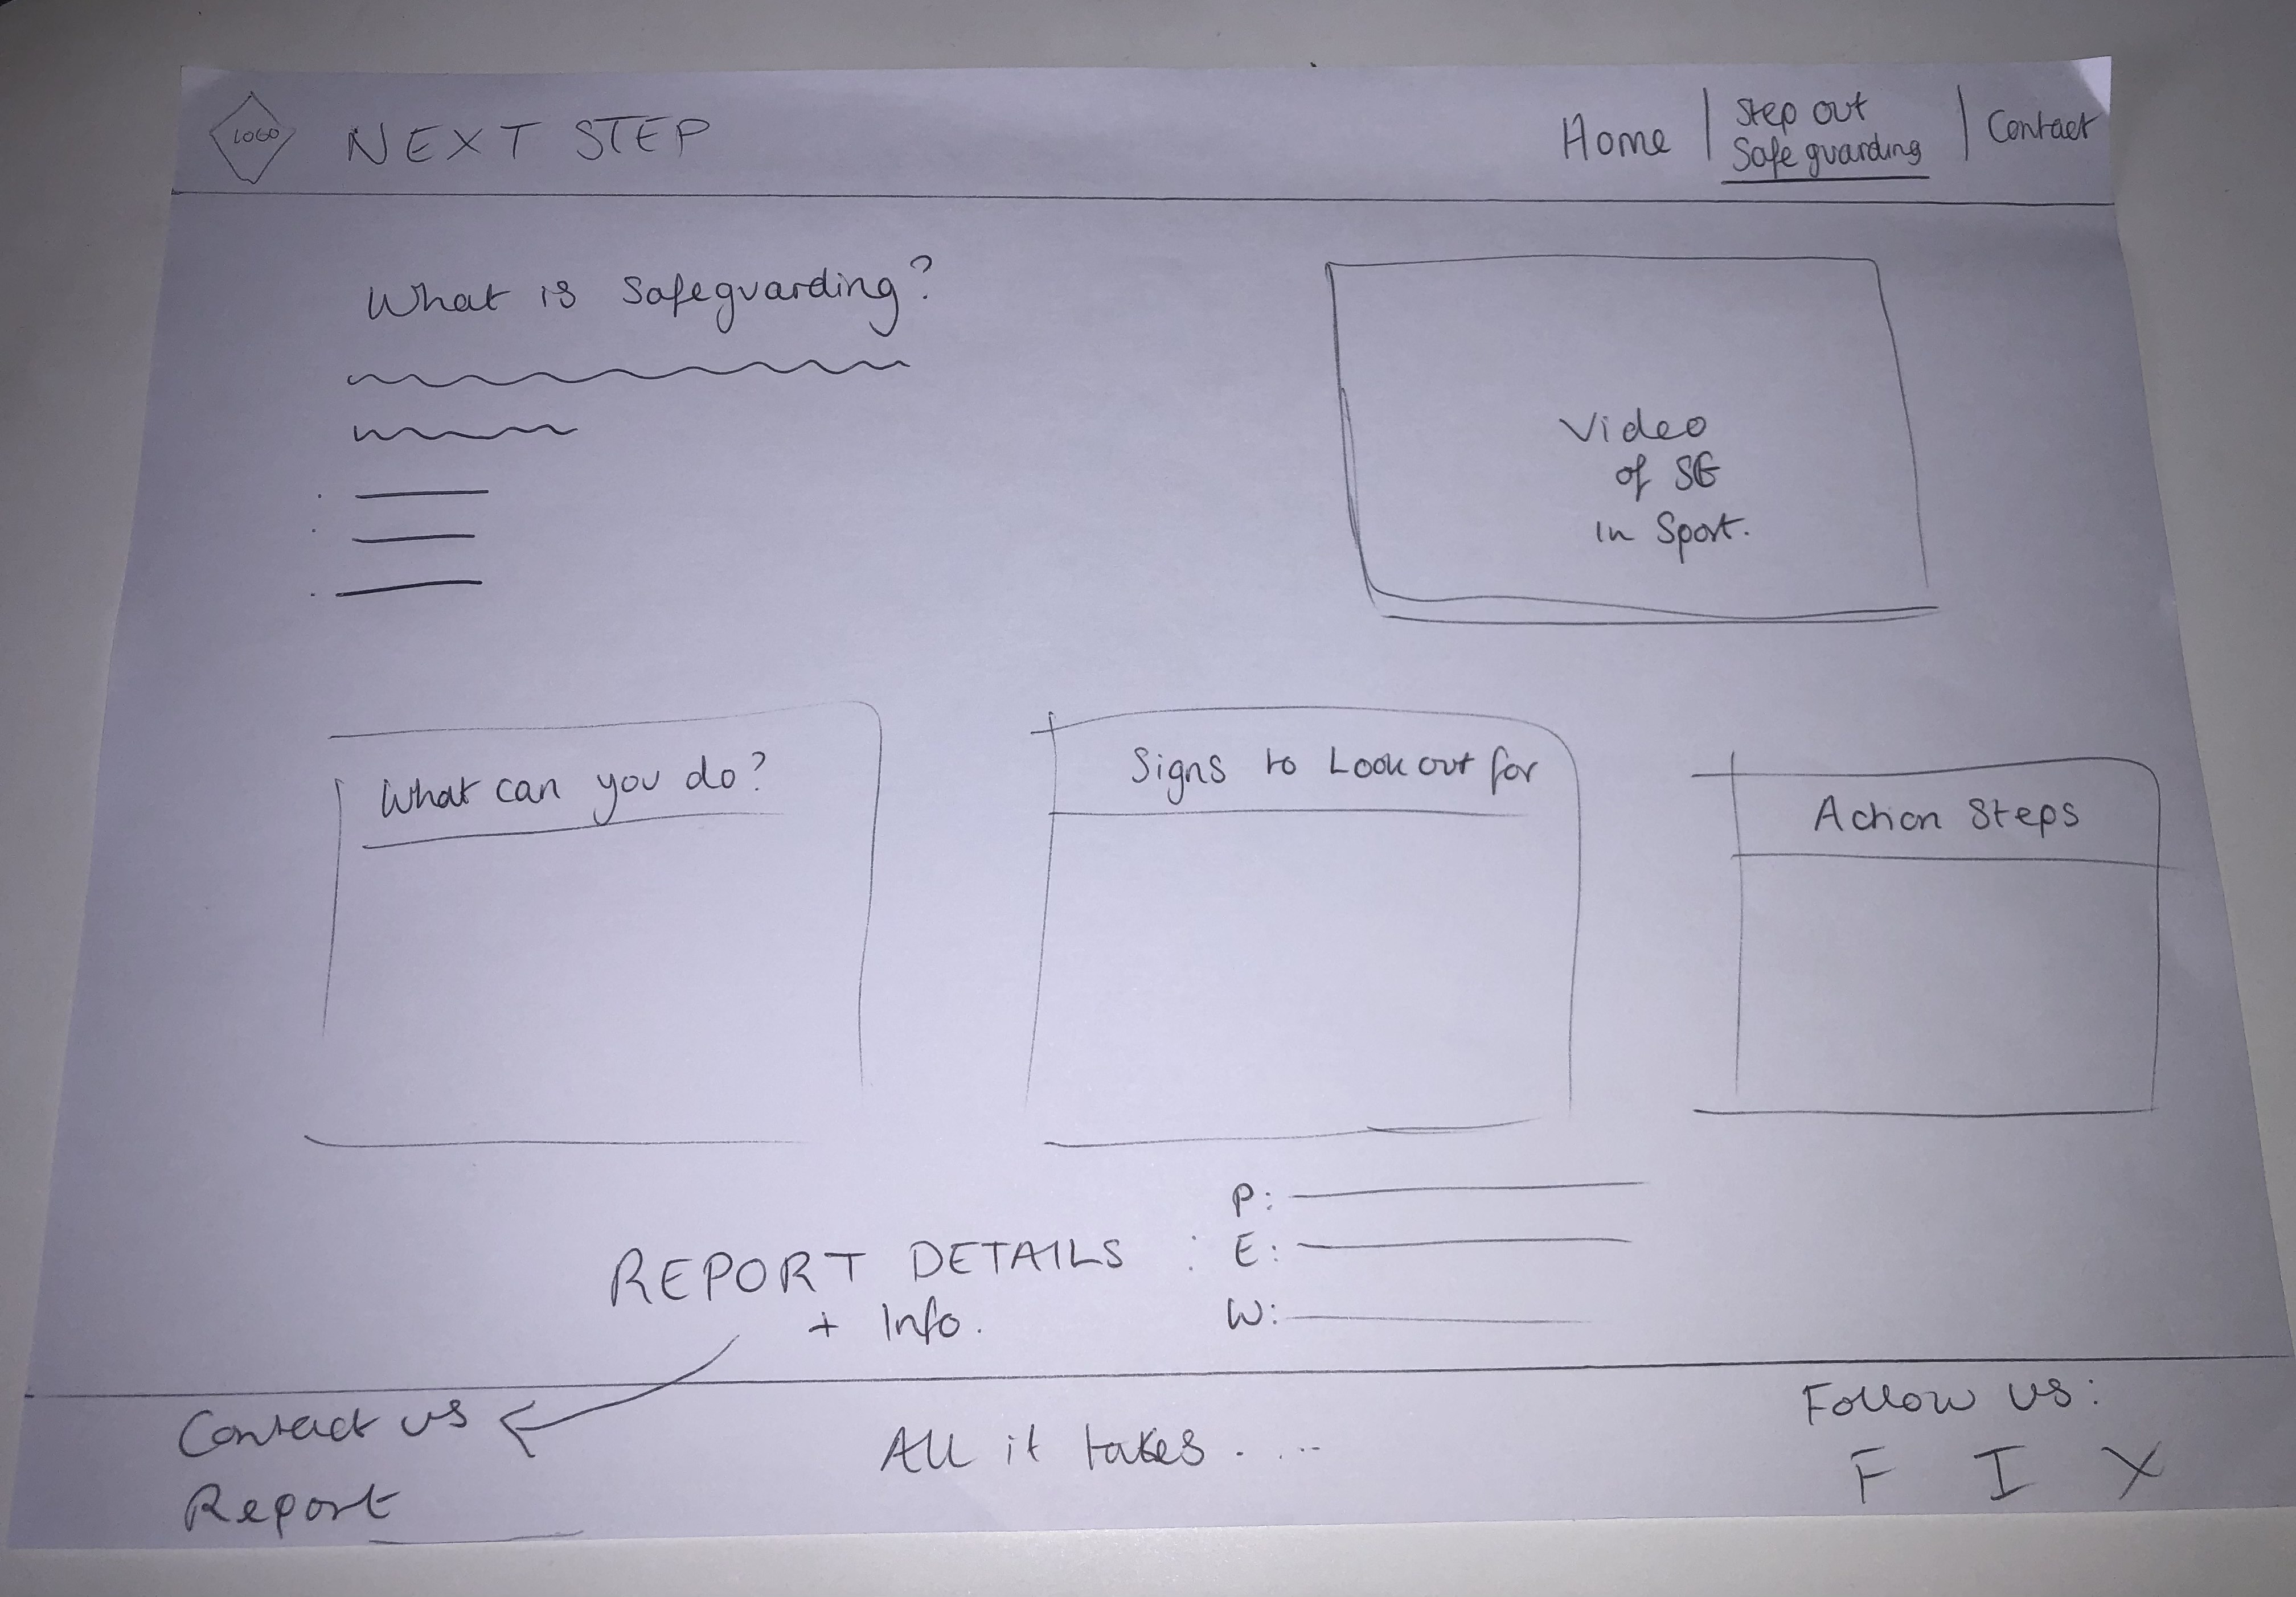 LOGO
NEXT STEP
Home
Step out
Safeguarding
Contact
What is Safeguarding?
Video
of SG
in Sport.
What can you do?
Signs to Look out for
Action Steps
REPORT DETAILS :
+ Info.
P:
E:
W:
Contact us
Report
All it takes . . . .
Follow us:
F I X